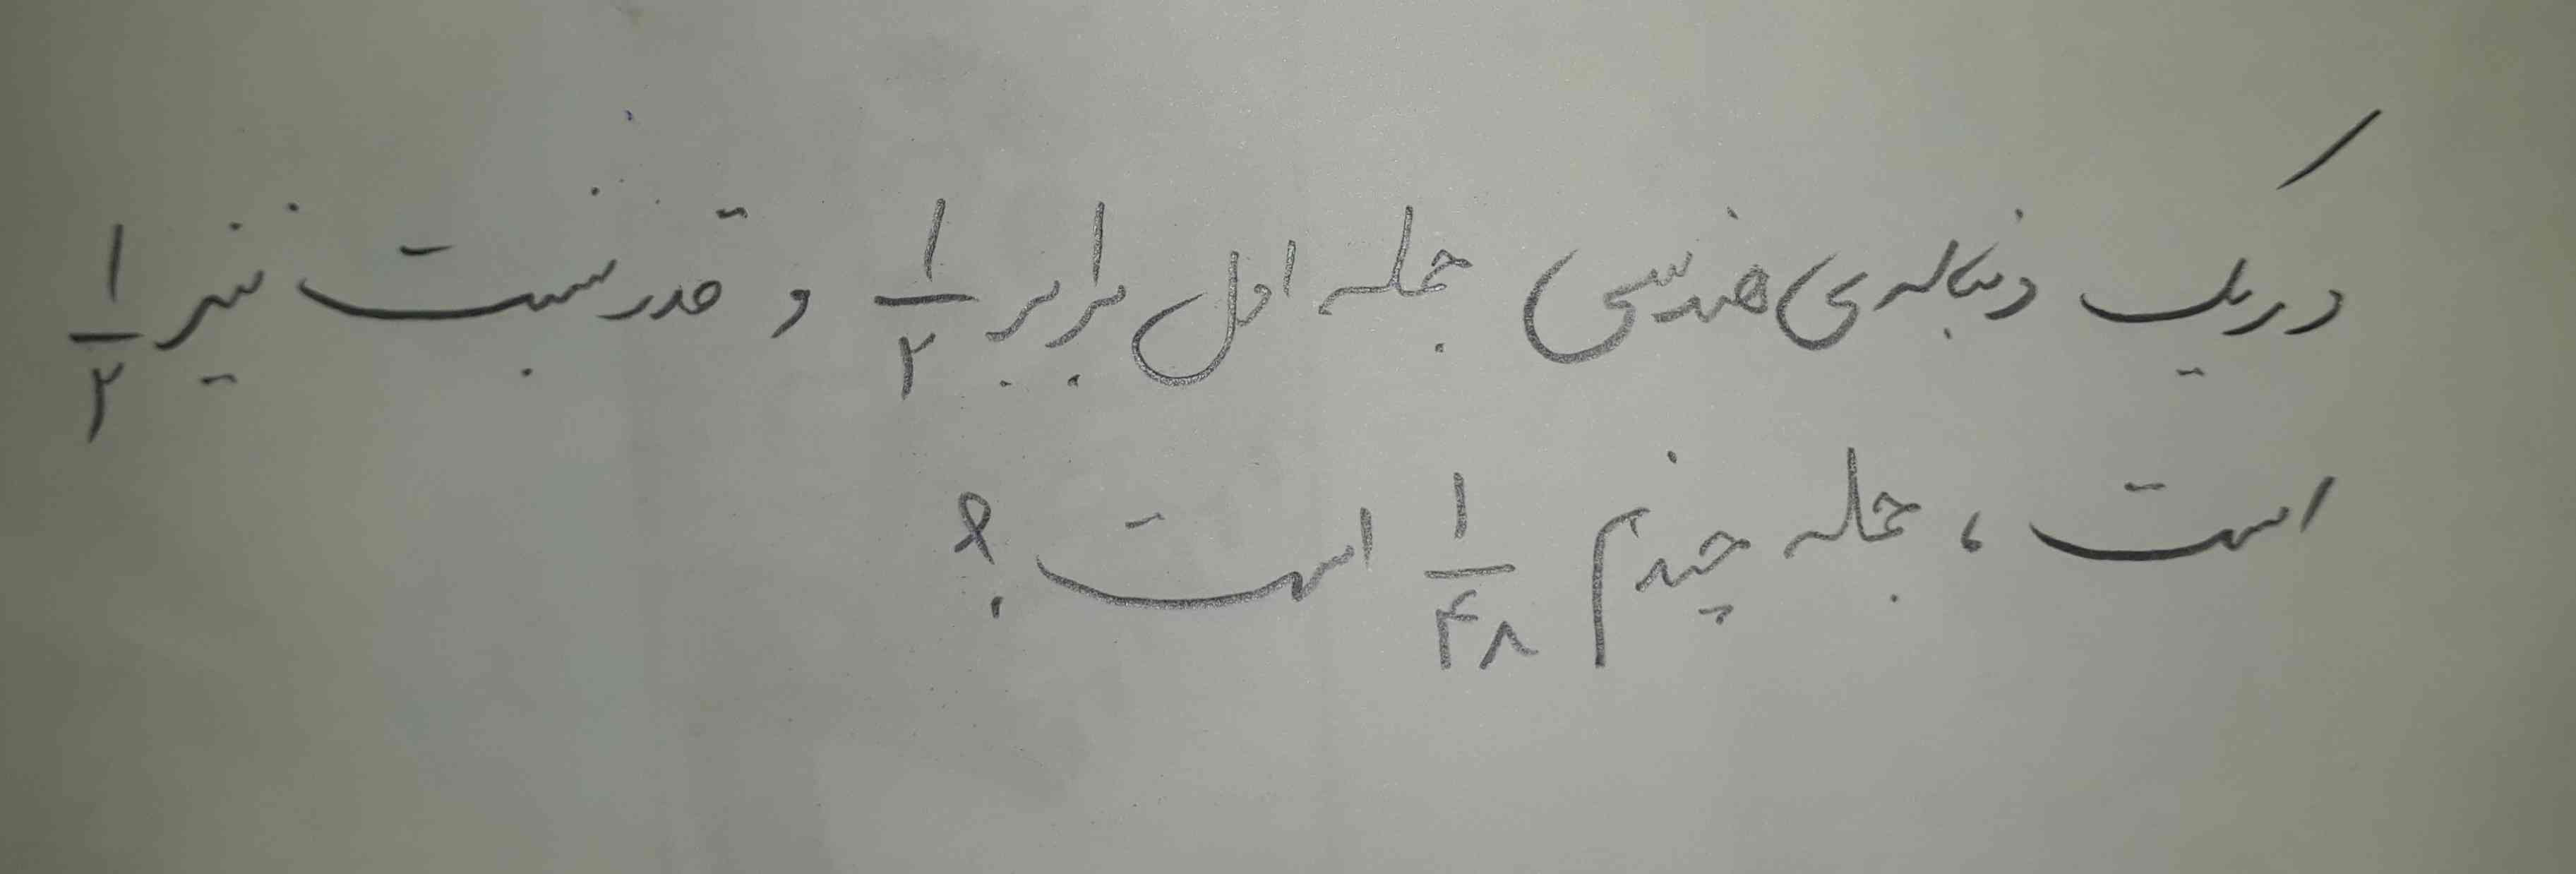 در یک دنباله‌ی هندسی جمله اول برابر ۱/۲ و قدر نسبت نیز ۱/۲
است، جمله چندم ۱/۴۸ است؟